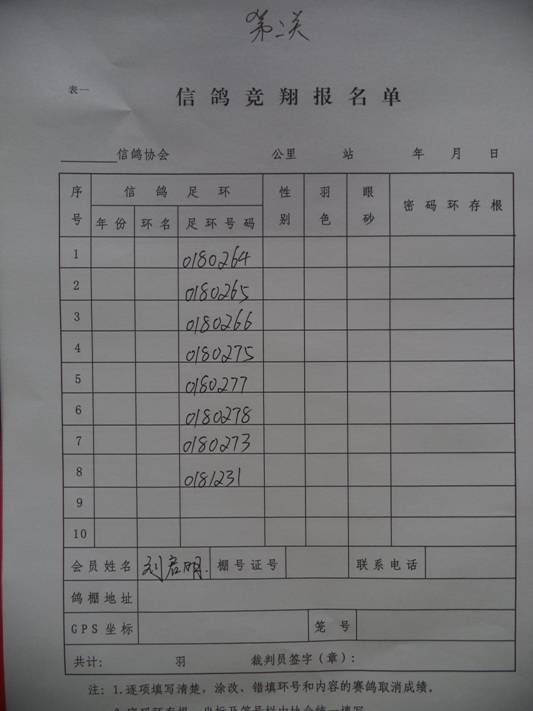 第二关
表一
信鸽竞翔报名单
信鸽协会 公里 站 年 月 日
序号 信鸽足环 性别 羽色 眼砂 密码环存根
年份 环名 足环号码
1 0180264
2 0180265
3 0180266
4 0180275
5 0180277
6 0180278
7 0180273
8 0181231
9
10
会员姓名 刘启明. 棚号证号 联系电话
鸽棚地址
GPS坐标 笼号
共计: 羽 裁判员签字(章):
注: 1.逐项填写清楚, 涂改、错填环号和内容的赛鸽取消成绩。